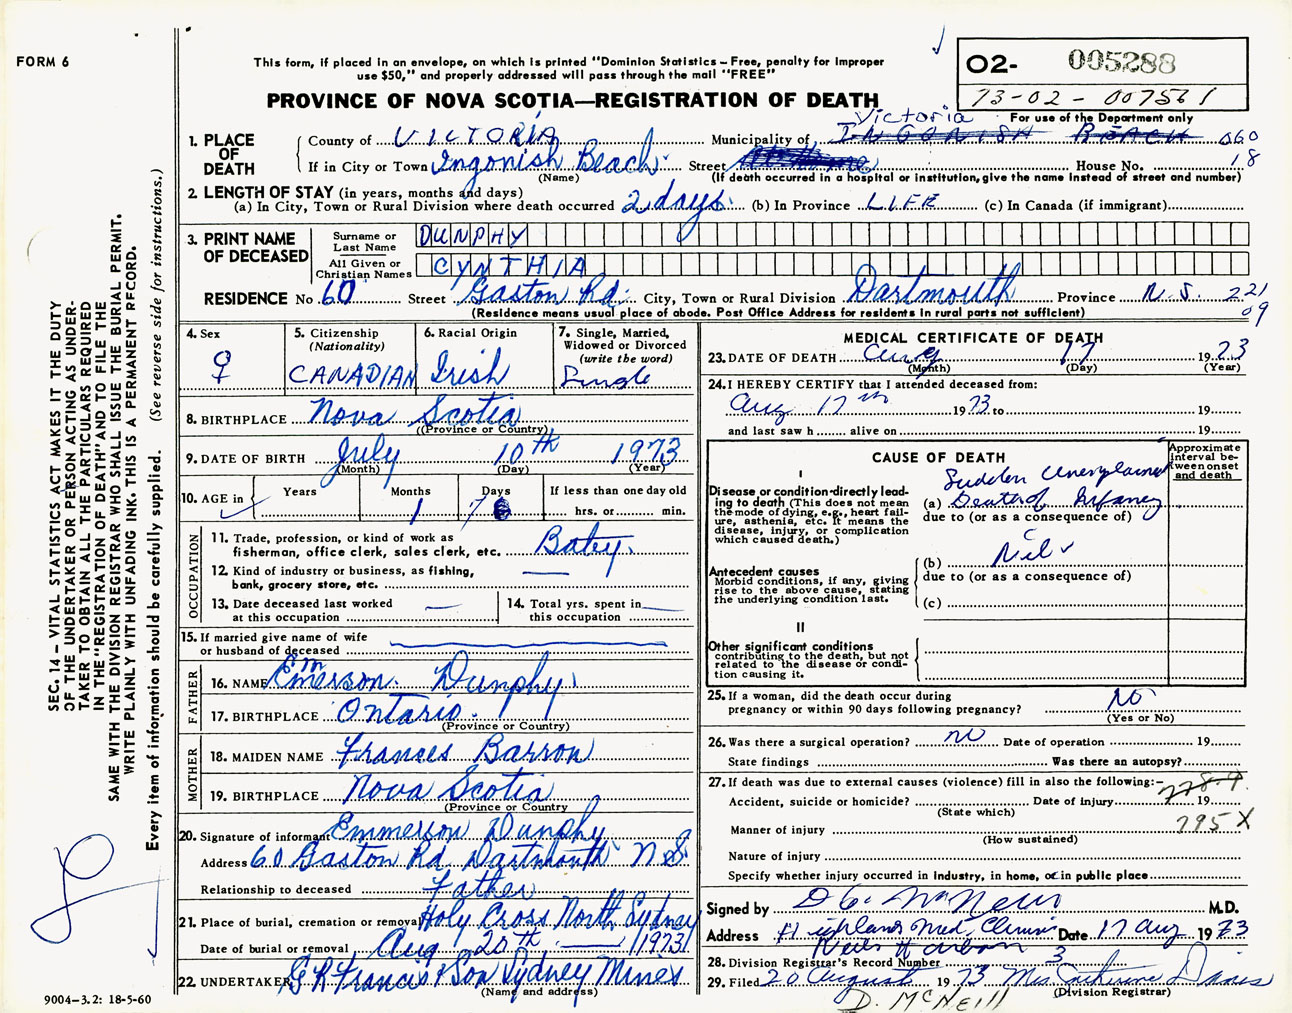 FORM 6
This form, if placed in an envelope, on which is printed "Dominion Statistics - Free, penalty for improper
use $50," and properly addressed will pass through the mail "FREE"
O2- 005288
73-02-007561
PROVINCE OF NOVA SCOTIA—REGISTRATION OF DEATH
For use of the Department only
Victoria
1. PLACE OF DEATH
County of VICTORIA Municipality of INGONISH BEACH 060
If in City or Town Ingonish Beach Street House No. 18
(Name) (If death occurred in a hospital or institution, give the name instead of street and number)
2. LENGTH OF STAY (in years, months and days)
(a) In City, Town or Rural Division where death occurred 2 days. (b) In Province LIFE (c) In Canada (if immigrant)
3. PRINT NAME OF DECEASED
Surname or Last Name DUNPHY
All Given or Christian Names CYNTHIA
RESIDENCE No. 60 Street Gaston Rd. City, Town or Rural Division Dartmouth Province N.S. 221
09
(Residence means usual place of abode. Post Office Address for residents in rural parts not sufficient)
4. Sex ♀
5. Citizenship (Nationality) CANADIAN
6. Racial Origin Irish
7. Single, Married, Widowed or Divorced (write the word) Single
8. BIRTHPLACE Nova Scotia
(Province or Country)
9. DATE OF BIRTH July 10th 1973
(Month) (Day) (Year)
10. AGE in Years Months Days If less than one day old
1 7 hrs. or min.
OCCUPATION
11. Trade, profession, or kind of work as
fisherman, office clerk, sales clerk, etc. Baby.
12. Kind of industry or business, as fishing,
bank, grocery store, etc. —
13. Date deceased last worked
at this occupation —
14. Total yrs. spent in
this occupation —
15. If married give name of wife
or husband of deceased
FATHER
Em
16. NAME Emerson Dunphy
17. BIRTHPLACE Ontario.
(Province or Country)
MOTHER
18. MAIDEN NAME Frances Barron
19. BIRTHPLACE Nova Scotia
(Province or Country
20. Signature of informant Emmerson Dunphy
Address 60 Gaston Rd Dartmouth N S.
Relationship to deceased Father
21. Place of burial, cremation or removal Holy Cross North Sydney
Date of burial or removal Aug 20th — 1973
22. UNDERTAKER G R Francis & Son Sydney Mines
(Name and address)
MEDICAL CERTIFICATE OF DEATH
23. DATE OF DEATH Aug 17 1973
(Month) (Day) (Year)
24. I HEREBY CERTIFY that I attended deceased from:
Aug 17th 1973 to 19
and last saw h alive on 19
CAUSE OF DEATH
Approximate interval between onset and death
I
Disease or condition directly leading to death (This does not mean the mode of dying, e.g., heart failure, asthenia, etc. It means the disease, injury, or complication which caused death.)
Sudden Unexplained
(a) Death of Infancy
due to (or as a consequence of)
Antecedent causes
Morbid conditions, if any, giving rise to the above cause, stating the underlying condition last.
(b) Nil
due to (or as a consequence of)
(c)
II
Other significant conditions
contributing to the death, but not related to the disease or condition causing it.
25. If a woman, did the death occur during
pregnancy or within 90 days following pregnancy? NO
(Yes or No)
26. Was there a surgical operation? NO Date of operation 19
State findings Was there an autopsy?
27. If death was due to external causes (violence) fill in also the following:-
Accident, suicide or homicide? Date of injury 19
(State which)
795 X
Manner of injury
(How sustained)
Nature of injury
Specify whether injury occurred in industry, in home, or in public place
Signed by M.D.
Address Highland Med. Clinic Date 17 Aug 1973
Neils Harbour
28. Division Registrar's Record Number 3
29. Filed 20 August 1973 Mrs. Catherine
(Division Registrar)
D. MCNEILL
SEC. 14 - VITAL STATISTICS ACT MAKES IT THE DUTY
OF THE UNDERTAKER OR PERSON ACTING AS UNDER-
TAKER TO OBTAIN ALL THE PARTICULARS REQUIRED
IN THE "REGISTRATION OF DEATH" AND TO FILE THE
SAME WITH THE DIVISION REGISTRAR WHO SHALL ISSUE THE BURIAL PERMIT.
WRITE PLAINLY WITH UNFADING INK. THIS IS A PERMANENT RECORD.
Every item of information should be carefully supplied. (See reverse side for instructions.)
9004-3.2: 18-5-60